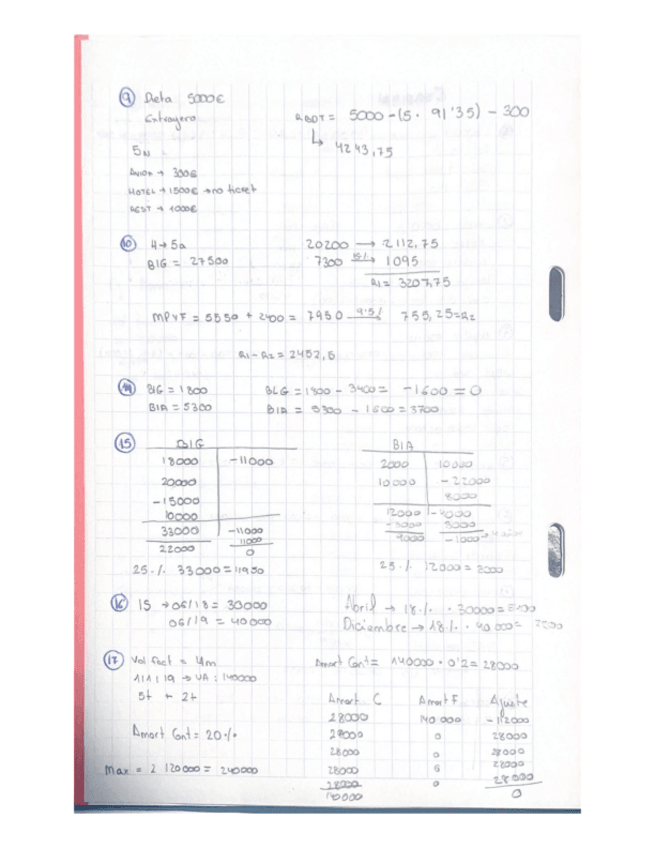 9 Dieta 5000€ RBDT = 5000 - (5 · 91'35) - 300
Extranjero ↳ 4243,75
5N
AVION → 300€
HOTEL → 1500€ → no ticket
REST → 1000€
10 4 → 5a 20200 → 2112,75
BIG = 27500 7300 15% → 1095
R1 = 3207,75
MPYF = 5550 + 2400 = 7950 9'5% → 755,25 = R2
R1 - R2 = 2452,5
BIG = 1800 BLG = 1800 - 3400 = -1600 = 0
BIA = 5300 BIA = 5300 - 1600 = 3700
15 BIG BIA
18000 -11000 2000 10000
20000 10000 -22000
-15000 8000
10000 12000 -4000
33000 -11000 -3000 3000
22000 11000 9000 -1000
0
25% 33000 = 11950 25% 12000 =
16 IS → 06/18 = 30000 Abril → 18% · 30000 =
06/19 = 40000 Diciembre → 18% · 40000 =
17 Vol fact = 4m Amort Cont = 140000 · 0'2 = 28000
1/1/19 → VA: 140000
5t + 2t Amort C Amort F Ajuste
28000 140 000 -112000
Amort Cont = 20% 28000 0 28000
28000 0 28000
Max = 2 120000 = 240000 28000 0 28000
28000 0 28000
140000 0